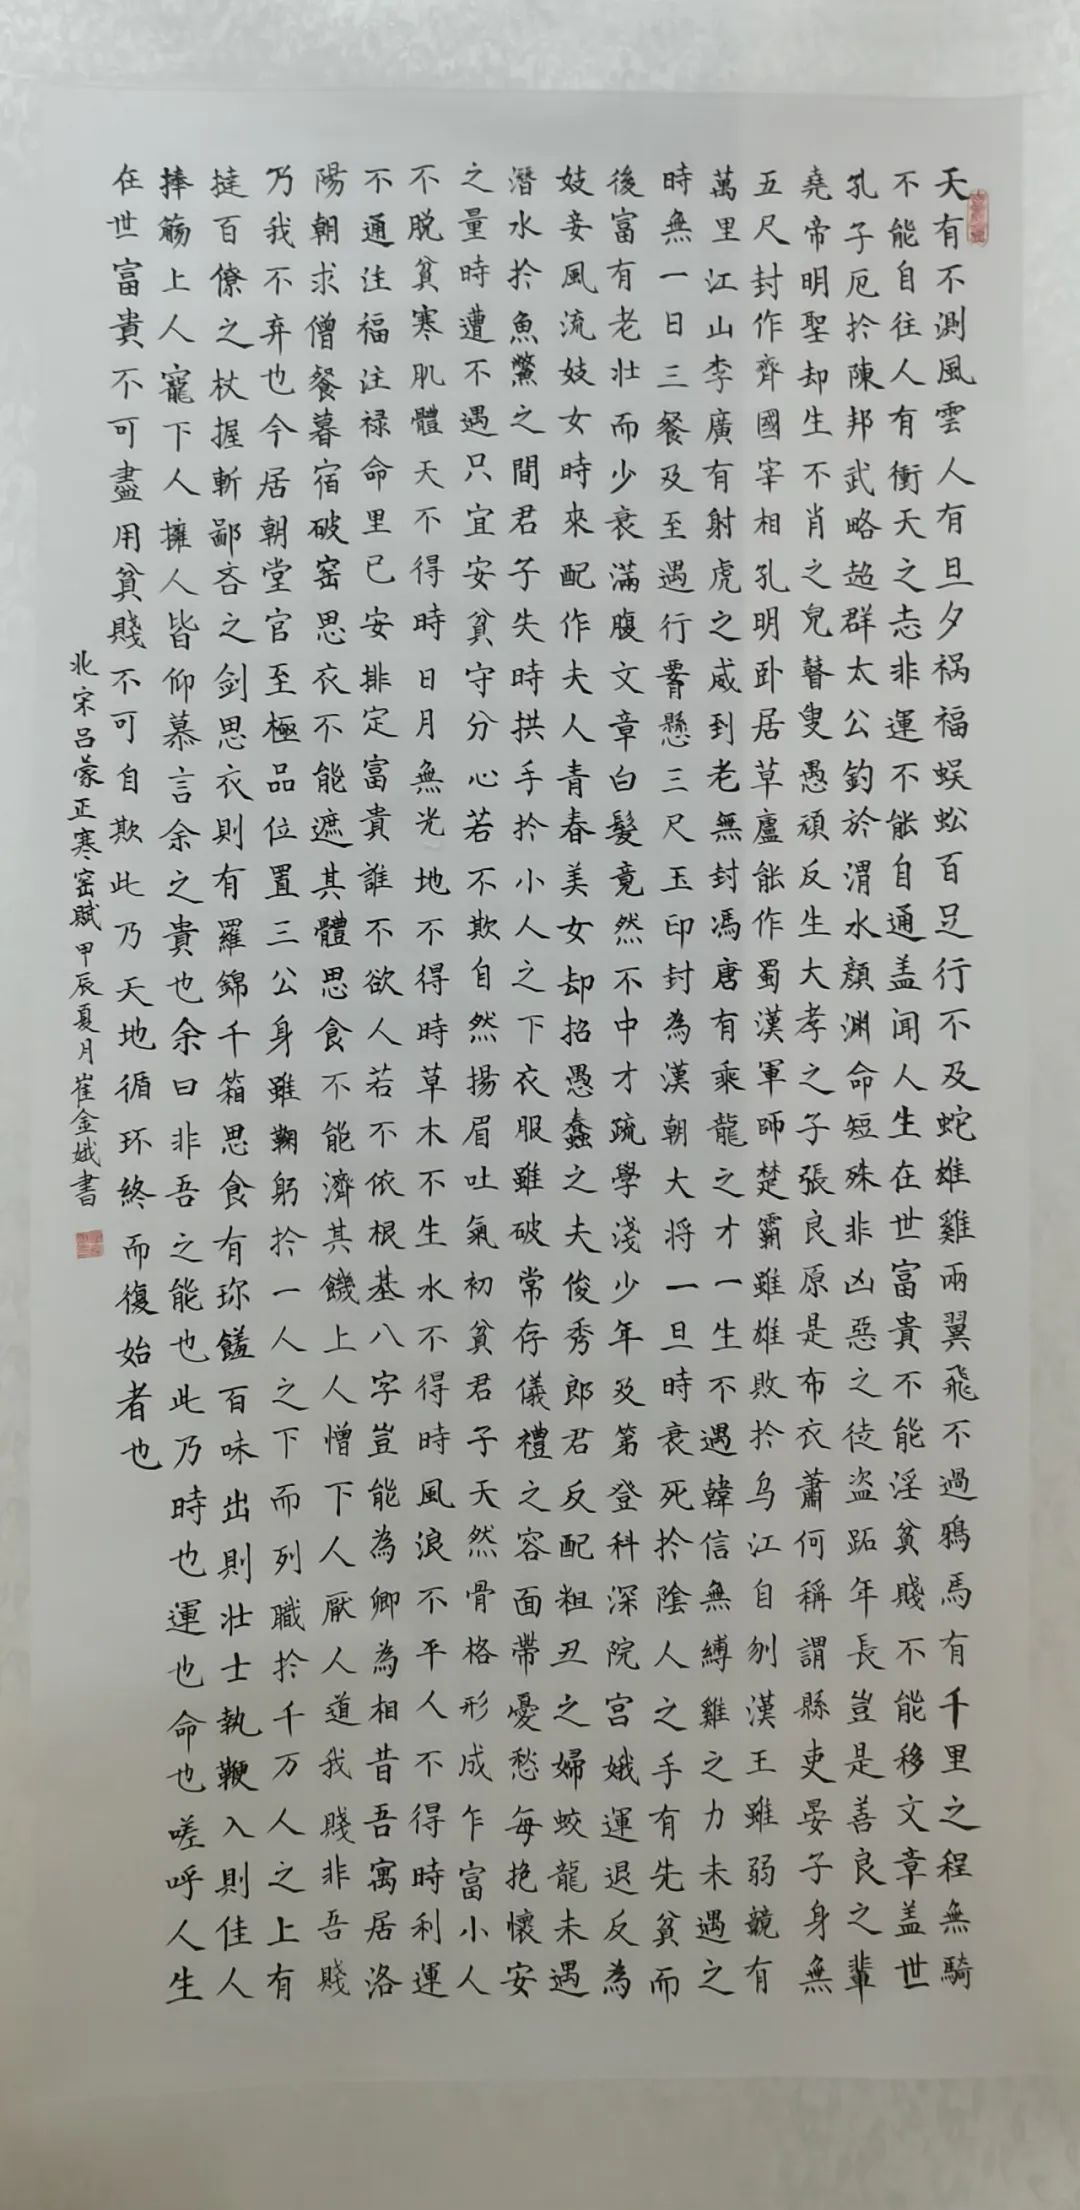 天有不測風雲人有旦夕祸福蜈蚣百足行不及蛇雄雞兩翼飛不過鴉馬有千里之程無騎
不能自往人有衝天之志非運不能自通盖闻人生在世富貴不能淫貧賤不能移文章盖世
孔子厄扵陳邦武略超群太公釣於渭水顏淵命短殊非凶惡之徒盗跖年長豈是善良之輩
堯帝明聖却生不肖之兒瞽叟愚頑反生大孝之子張良原是布衣蕭何稱謂縣吏晏子身無
五尺封作齊國宰相孔明卧居草廬能作蜀漢軍師楚霸雖雄敗扵乌江自刎漢王雖弱競有
萬里江山李廣有射虎之威到老無封馮唐有乘龍之才一生不遇韓信無縛雞之力未遇之
時無一日三餐及至遇行腰懸三尺玉印封為漢朝大将一旦時衰死扵陰人之手有先貧而
後富有老壮而少衰滿腹文章白髮竟然不中才疏學淺少年及第登科深院宫娥運退反為
妓妾風流妓女時來配作夫人青春美女却招愚蠢之夫俊秀郎君反配粗丑之婦蛟龍未遇
潛水扵魚鱉之間君子失時拱手扵小人之下衣服雖破常存儀禮之容面帶憂愁每抱懷安
之量時遭不遇只宜安貧守分心若不欺自然揚眉吐氣初貧君子天然骨格形成乍富小人
不脫貧寒肌體天不得時日月無光地不得時草木不生水不得時風浪不平人不得時利運
不通注福注禄命里已安排定富貴誰不欲人若不依根基八字豈能為卿為相昔吾寓居洛
陽朝求僧餐暮宿破窑思衣不能遮其體思食不能濟其饑上人憎下人厭人道我賤非吾賤
乃我不弃也今居朝堂官至極品位置三公身雖鞠躬扵一人之下而列職扵千万人之上有
撻百僚之杖握斬鄙吝之剑思衣則有羅錦千箱思食有珎饈百味出則壮士執鞭入則佳人
捧觞上人寵下人擁人皆仰慕言余之貴也余曰非吾之能也此乃時也運也命也嗟呼人生
在世富貴不可盡用貧賤不可自欺此乃天地循环終而復始者也
北宋吕蒙正寒窑賦甲辰夏月崔金娥書